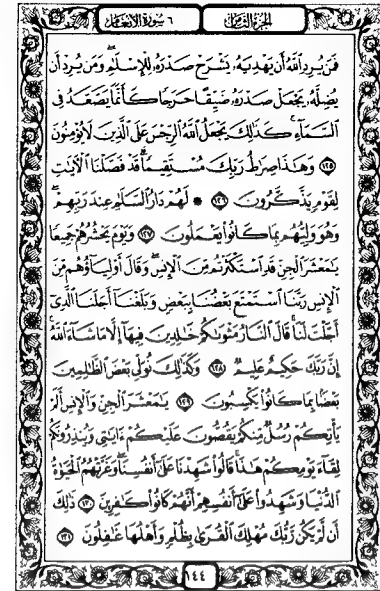 الجزء الثامن
٦ سورة الأنعام
فَمَن يُرِدِ ٱللَّهُ أَن يَهۡدِيَهُۥ يَشۡرَحۡ صَدۡرَهُۥ لِلۡإِسۡلَٰمِۖ وَمَن يُرِدۡ أَن
يُضِلَّهُۥ يَجۡعَلۡ صَدۡرَهُۥ ضَيِّقًا حَرَجٗا كَأَنَّمَا يَصَّعَّدُ فِي
ٱلسَّمَآءِۚ كَذَٰلِكَ يَجۡعَلُ ٱللَّهُ ٱلرِّجۡسَ عَلَى ٱلَّذِينَ لَا يُؤۡمِنُونَ
١٢٥ وَهَٰذَا صِرَٰطُ رَبِّكَ مُسۡتَقِيمٗاۗ قَدۡ فَصَّلۡنَا ٱلۡأٓيَٰتِ
لِقَوۡمٖ يَذَّكَّرُونَ ١٢٦ ۞ لَهُمۡ دَارُ ٱلسَّلَٰمِ عِندَ رَبِّهِمۡۖ
وَهُوَ وَلِيُّهُم بِمَا كَانُواْ يَعۡمَلُونَ ١٢٧ وَيَوۡمَ يَحۡشُرُهُمۡ جَمِيعٗا
يَٰمَعۡشَرَ ٱلۡجِنِّ قَدِ ٱسۡتَكۡثَرۡتُم مِّنَ ٱلۡإِنسِۖ وَقَالَ أَوۡلِيَآؤُهُم مِّنَ
ٱلۡإِنسِ رَبَّنَا ٱسۡتَمۡتَعَ بَعۡضُنَا بِبَعۡضٖ وَبَلَغۡنَآ أَجَلَنَا ٱلَّذِيٓ
أَجَّلۡتَ لَنَاۚ قَالَ ٱلنَّارُ مَثۡوَىٰكُمۡ خَٰلِدِينَ فِيهَآ إِلَّا مَا شَآءَ ٱللَّهُۚ
إِنَّ رَبَّكَ حَكِيمٌ عَلِيمٞ ١٢٨ وَكَذَٰلِكَ نُوَلِّي بَعۡضَ ٱلظَّٰلِمِينَ
بَعۡضَۢا بِمَا كَانُواْ يَكۡسِبُونَ ١٢٩ يَٰمَعۡشَرَ ٱلۡجِنِّ وَٱلۡإِنسِ أَلَمۡ
يَأۡتِكُمۡ رُسُلٞ مِّنكُمۡ يَقُصُّونَ عَلَيۡكُمۡ ءَايَٰتِي وَيُنذِرُونَكُمۡ
لِقَآءَ يَوۡمِكُمۡ هَٰذَاۚ قَالُواْ شَهِدۡنَا عَلَىٰٓ أَنفُسِنَاۖ وَغَرَّتۡهُمُ ٱلۡحَيَوٰةُ
ٱلدُّنۡيَا وَشَهِدُواْ عَلَىٰٓ أَنفُسِهِمۡ أَنَّهُمۡ كَانُواْ كَٰفِرِينَ ١٣٠ ذَٰلِكَ
أَن لَّمۡ يَكُن رَّبُّكَ مُهۡلِكَ ٱلۡقُرَىٰ بِظُلۡمٖ وَأَهۡلُهَا غَٰفِلُونَ ١٣١
١٤٤